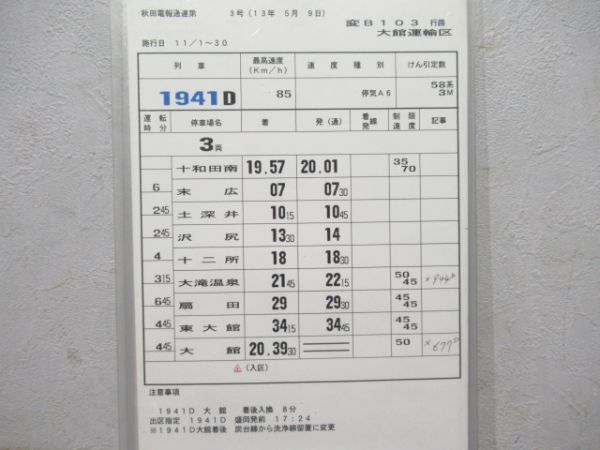 秋田電報通達第　　3号(13年　5月　9日)
変B103 行路
大館運輸区
施行日　11/1～30
列車　最高速度(Km/h)　速度種別　けん引定数
1941D　85　停気A6　58系 3M
運転時分　停車場名　着　発(通)　着発線　制限速度　記事
3両
十和田南　19.57　20.01　35 70
6　末広　07　07 30
2 45　土深井　10 15　10 45
2 45　沢尻　13 30　14
4　十二所　18　18 30
3 15　大滝温泉　21 45　22 15　50 45
6 45　扇田　29　29 30　45 45
4 45　東大館　34 15　34 45　45 45
4 45　大館　20.39 30　50
(入区)
注意事項
1941D 大館　着後入換　8分
出区指定　1941D　盛岡発前　17:24
※1941D大館着後　炭台線から洗浄線留置に変更